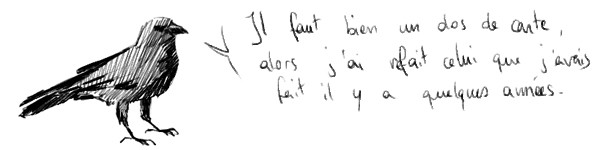 Il faut bien un dos de carte,
alors j'ai refait celui que j'avais
fait il y a quelques années.